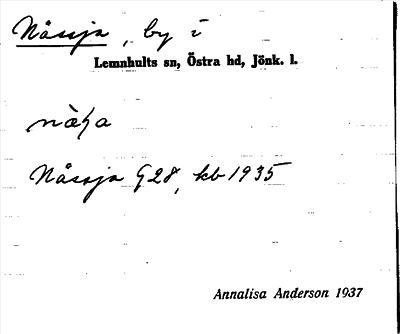 Nåssja, by i
Lemnhults sn, Östra hd, Jönk. l.
Nåssja G28, kb 1935
Annalisa Anderson 1937